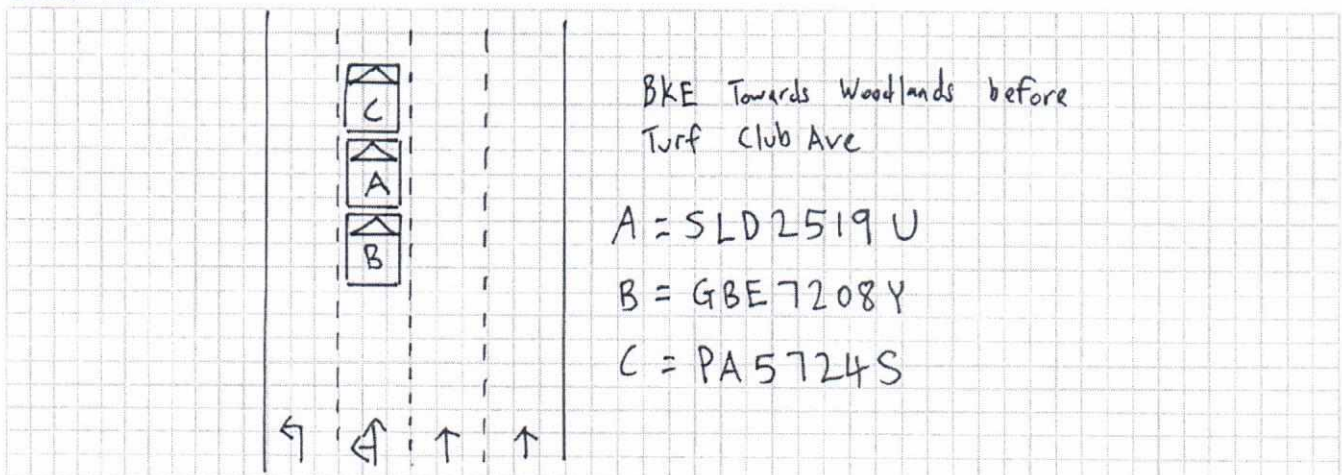 BKE Towards Woodlands before
Turf Club Ave
C
A
B
A = SLD2519U
B = GBE7208Y
C = PA5724S